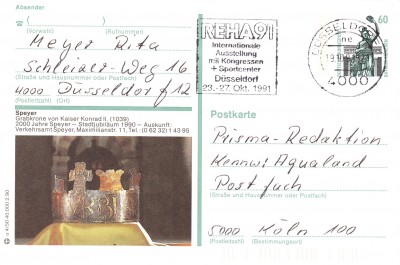 Absender
(Vorname) (Rufnummer)
Meyer Rita
Schleiner-Weg 16
(Straße und Hausnummer oder Postfach)
4000 Düsseldorf 12
(Postleitzahl) (Ort)
REHA91
Internationale
Ausstellung
mit Kongressen
+ Sportcenter
Düsseldorf
23.-27. Okt. 1991
DÜSSELDORF
4000
60
Speyer
Grabkrone von Kaiser Konrad II. (1039)
2000 Jahre Speyer – Stadtjubiläum 1990 – Auskunft:
Verkehrsamt Speyer, Maximilianstr. 11, Tel.: (0 62 32) 1 43 95
Postkarte
Prisma-Redaktion
Kennw: Aqualand
Postfach
(Straße und Hausnummer oder Postfach)
5000 Köln 100
(Postleitzahl) (Bestimmungsort)